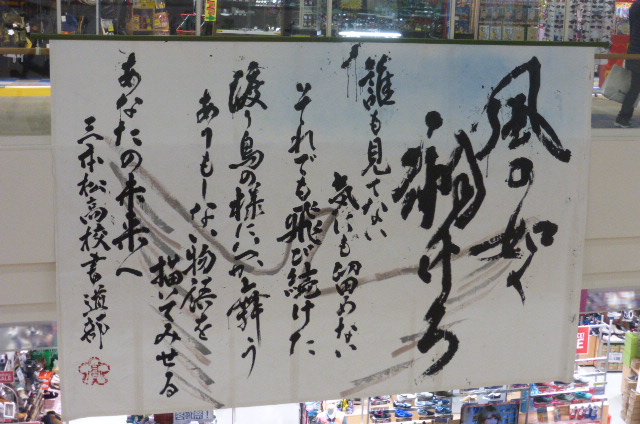 風の如く
翔けろ
誰も見てない
気にも留めない
それでも飛び続けた
渡り鳥の様にいつか舞う
ありもしない物語を
描いてみせる
あなたの未来へ
三本松高校書道部